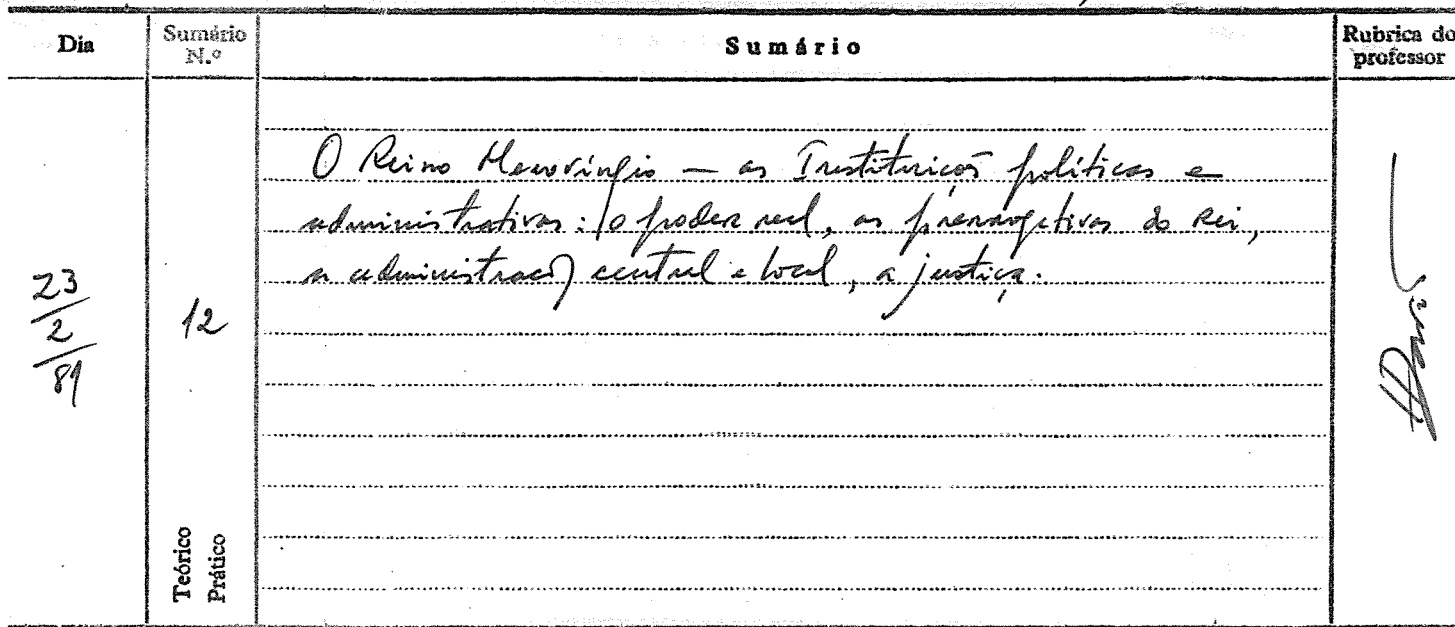 Dia
Sumário N.º
Sumário
Rubrica do professor
O Reino Merovíngio — as Instituições políticas e
administrativas: o poder real, as prerrogativas do Rei,
a administração central e local, a justiça.
23/2/81
12
Teórico
Prático